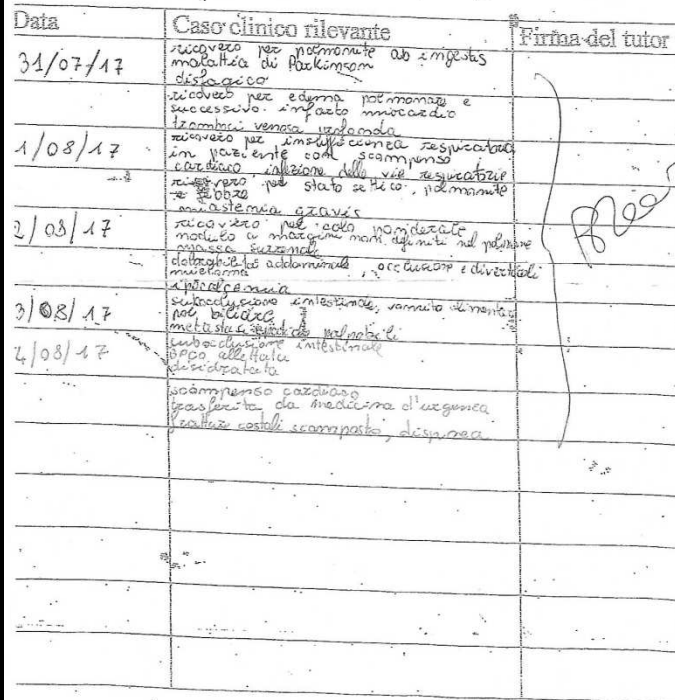 Data Caso clinico rilevante Firma del tutor
31/07/17 ricovero per polmonite ab ingestis
malattia di Parkinson
disfagico
ricovero per edema polmonare e
successivo infarto miocardio
trombosi venosa profonda
1/08/17 ricovero per insufficienza respiratoria
in paziente con scompenso
cardiaco, infezione delle vie respiratorie
ricovero per stato settico, polmonite
e febbre
miastemia gravis
2/08/17 ricovero per calo ponderale
modulo a margine non definiti nel polmone
massa surrenale
addominale, occlusione e diverticoli
ipocalcemia
3/08/17 subocclusione intestinale, vomito alimentare
poi biliare
metastasi
4/08/17 subocclusione intestinale
BPCO allettata
disidratata
scompenso cardiaco
trasferita da medicina d'urgenza
fratture costali scomposte, dispnea